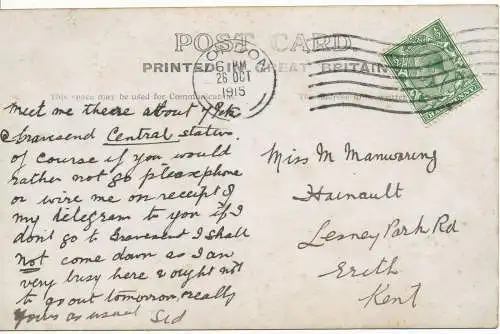 POST CARD.
PRINTED IN GREAT BRITAIN
This space may be used for Communication
LONDON
6 AM
26 OCT
1915
Meet me there about 7
Gravesend Central station.
of course if you would
rather not go please phone
or wire me on receipt of
my telegram to you if I
don't go to Gravesend I shall
not come down as I am
very busy here & ought not
to go out tomorrow, really
Yours as usual Sid
Miss M Manwaring
Hainault
Lesney Park Rd
Erith
Kent